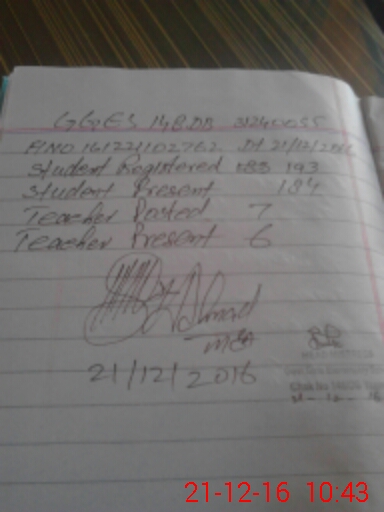 GGES 14BDB 31240055
P.NO 161221102762 Dt 21/12/2016
Student Registered 193
Student Present 184
Teacher Posted 7
Teacher Present 6
Ahmad
MEA
21/12/2016
HEADMISTRESS
21-12-16 10:43